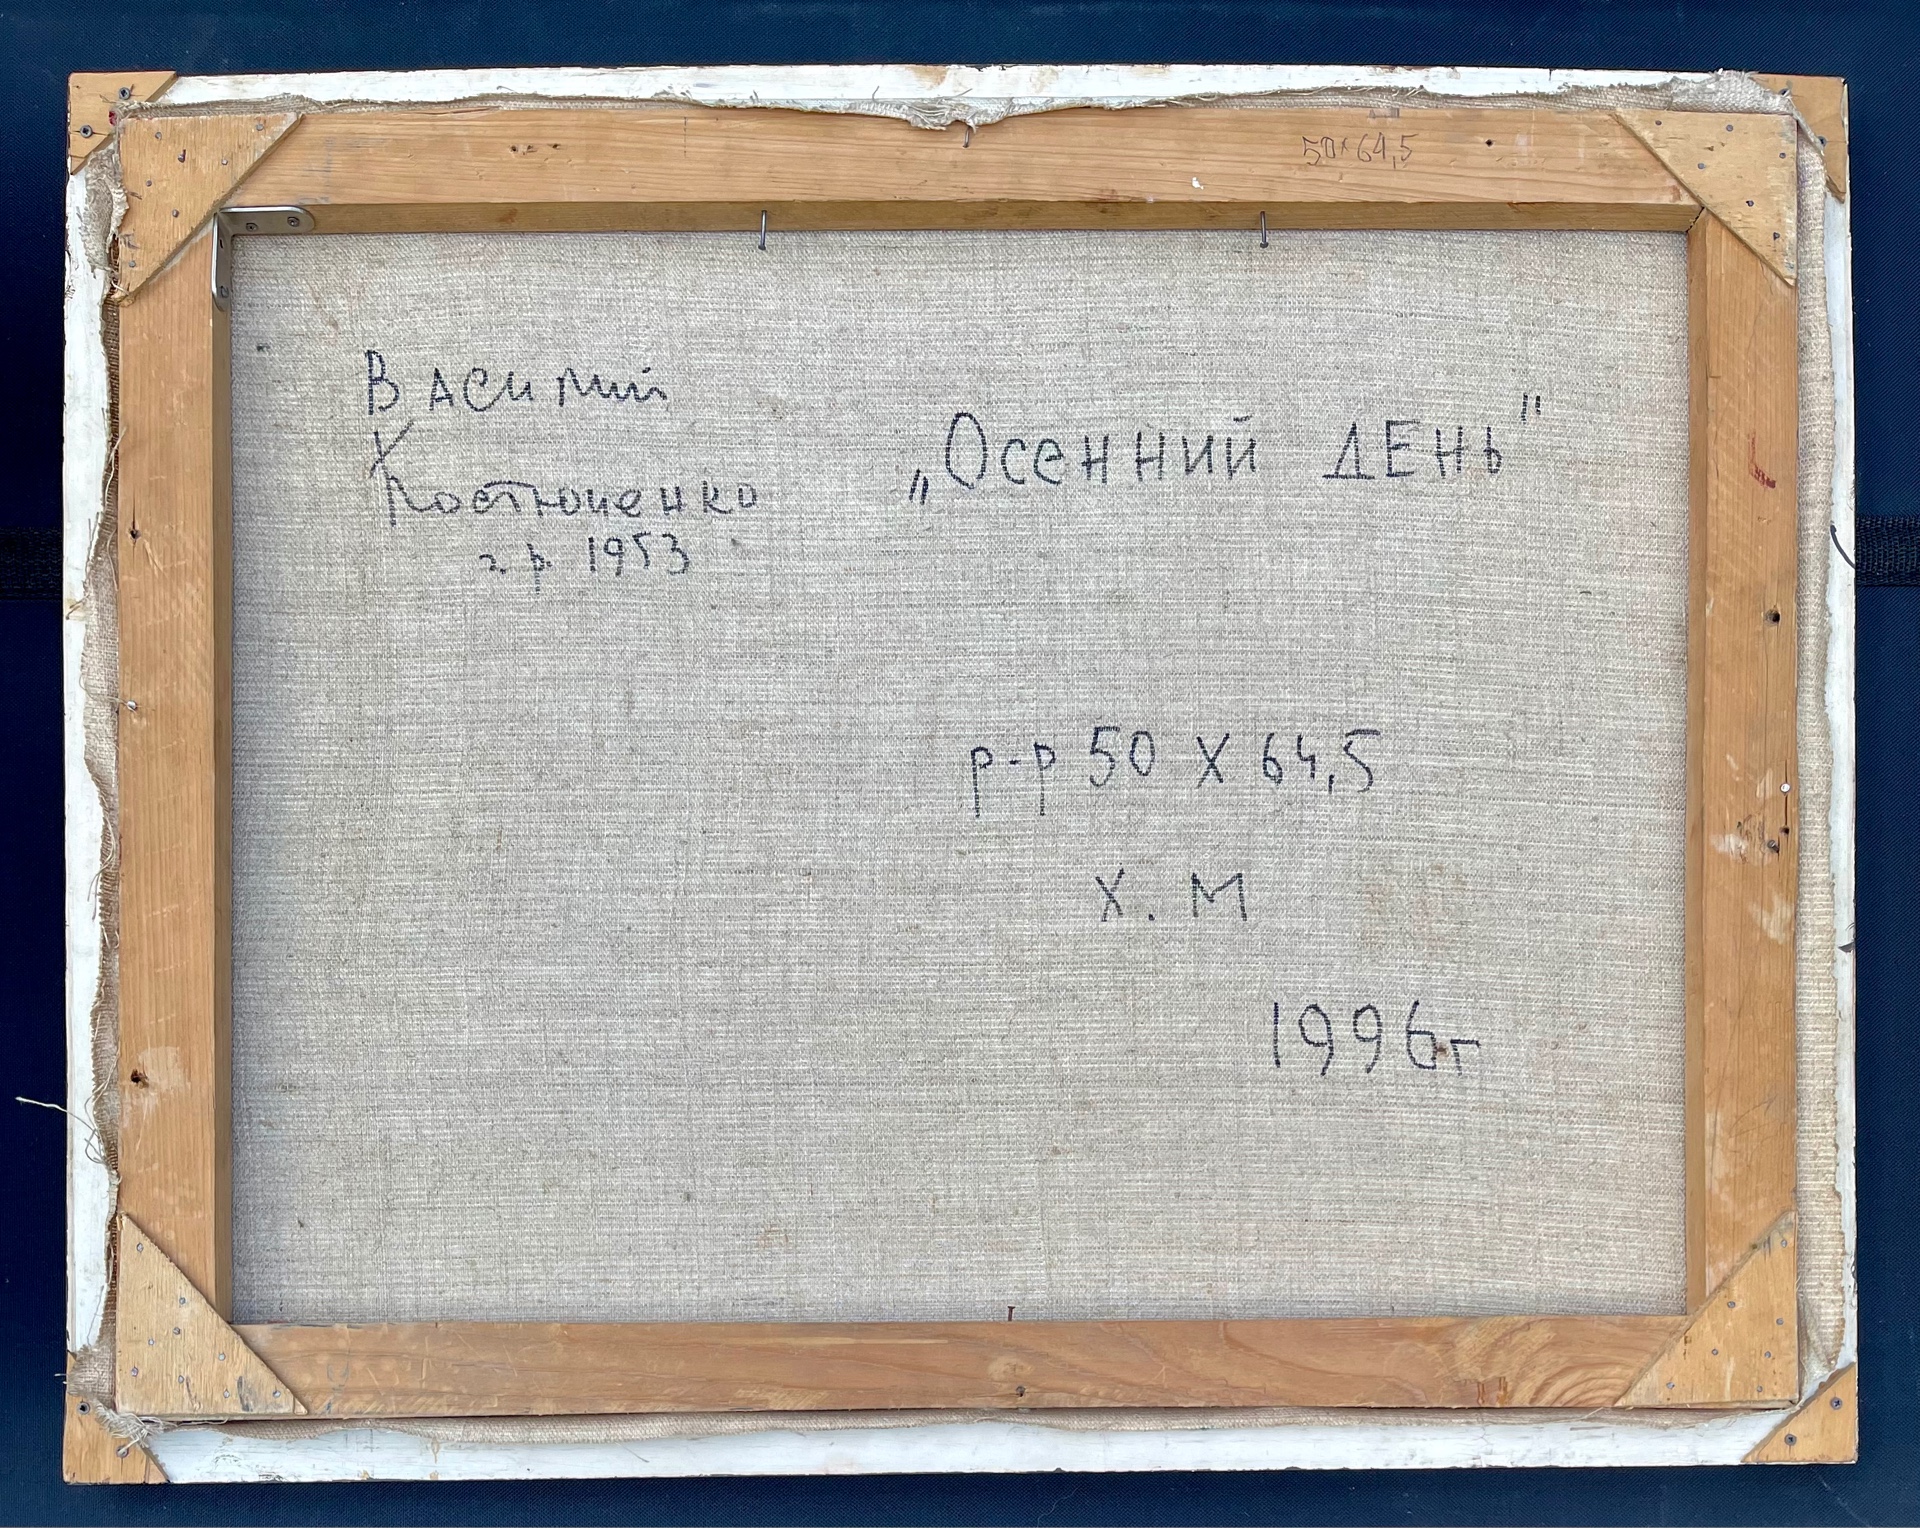 50х64,5
Василий
Костюченко
г.р. 1953
„Осенний ДЕНЬ"
р-р 50 Х 64,5
Х. М
1996г